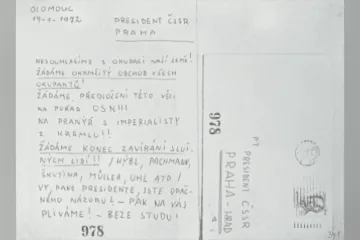 OLOMOUC
19-1-1972
PRESIDENT ČSSR
PRAHA
NESOUHLASÍME S OKUPACÍ NAŠÍ ZEMĚ!
ŽÁDÁME OKAMŽITÝ ODCHOD VŠECH
OKUPANTŮ!
ŽÁDÁME PŘEDLOŽENÍ TÉTO VĚCI
NA POŘAD OSN!!!
NA PRANÝŘ S IMPERIALISTY
Z KREMLU!!
ŽÁDÁME KONEC ZAVÍRÁNÍ SLUŠ-
NÝCH LIDÍ!! /HÝBL, PACHMANN,
ŠKUTINA, MÜLLER, UHL ATD/
VY, PANE PRESIDENTE, JSTE OPAČ-
NÉHO NÁZORU! – PAK NA VÁS
PLIVÁME! – BEZE STUDU!
978
978
PT
PRESIDENT ČSSR
PRAHA - HRAD